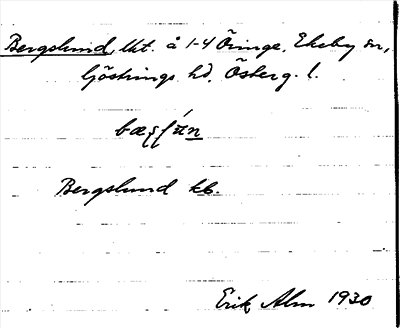 Bergslund, lht. å 1-4 Öringe, Ekeby sn,
Göstrings hd, Österg. l.
Bergslund kb.
Erik Alm 1930